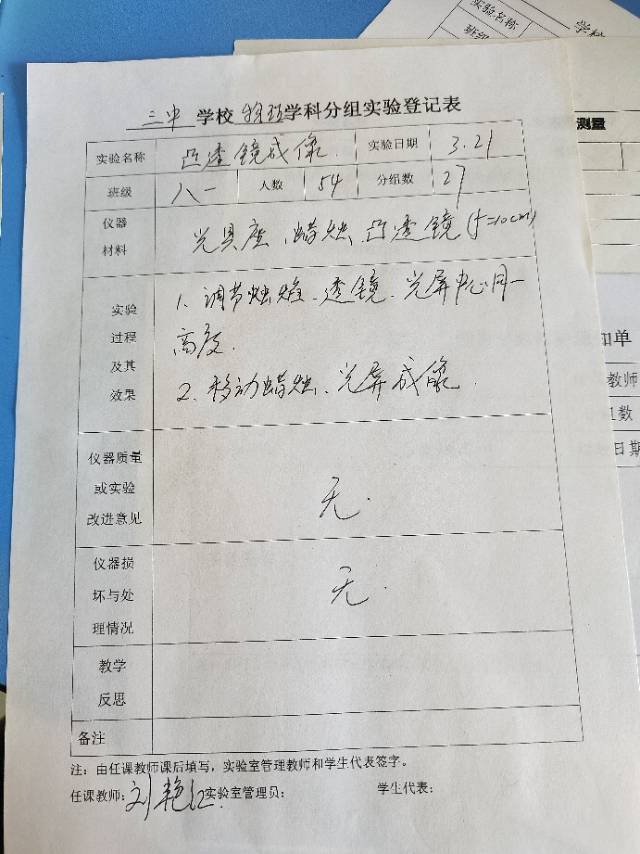 实验名称
学科
班级
测量
知单
教师
数
日期
三中 学校 物理 学科分组实验登记表
实验名称 凸透镜成像. 实验日期 3.21
班级 八一 人数 54 分组数 27
仪器材料 光具座、蜡烛、凸透镜(f=10cm)
实验过程及其效果 1. 调节烛焰、透镜、光屏中心同一
高度.
2. 移动蜡烛、光屏成像.
仪器质量
或实验
改进意见
无.
仪器损
坏与处
理情况
无.
教学
反思
备注
注：由任课教师课后填写，实验室管理教师和学生代表签字。
任课教师: 刘艳红 实验室管理员: 学生代表: